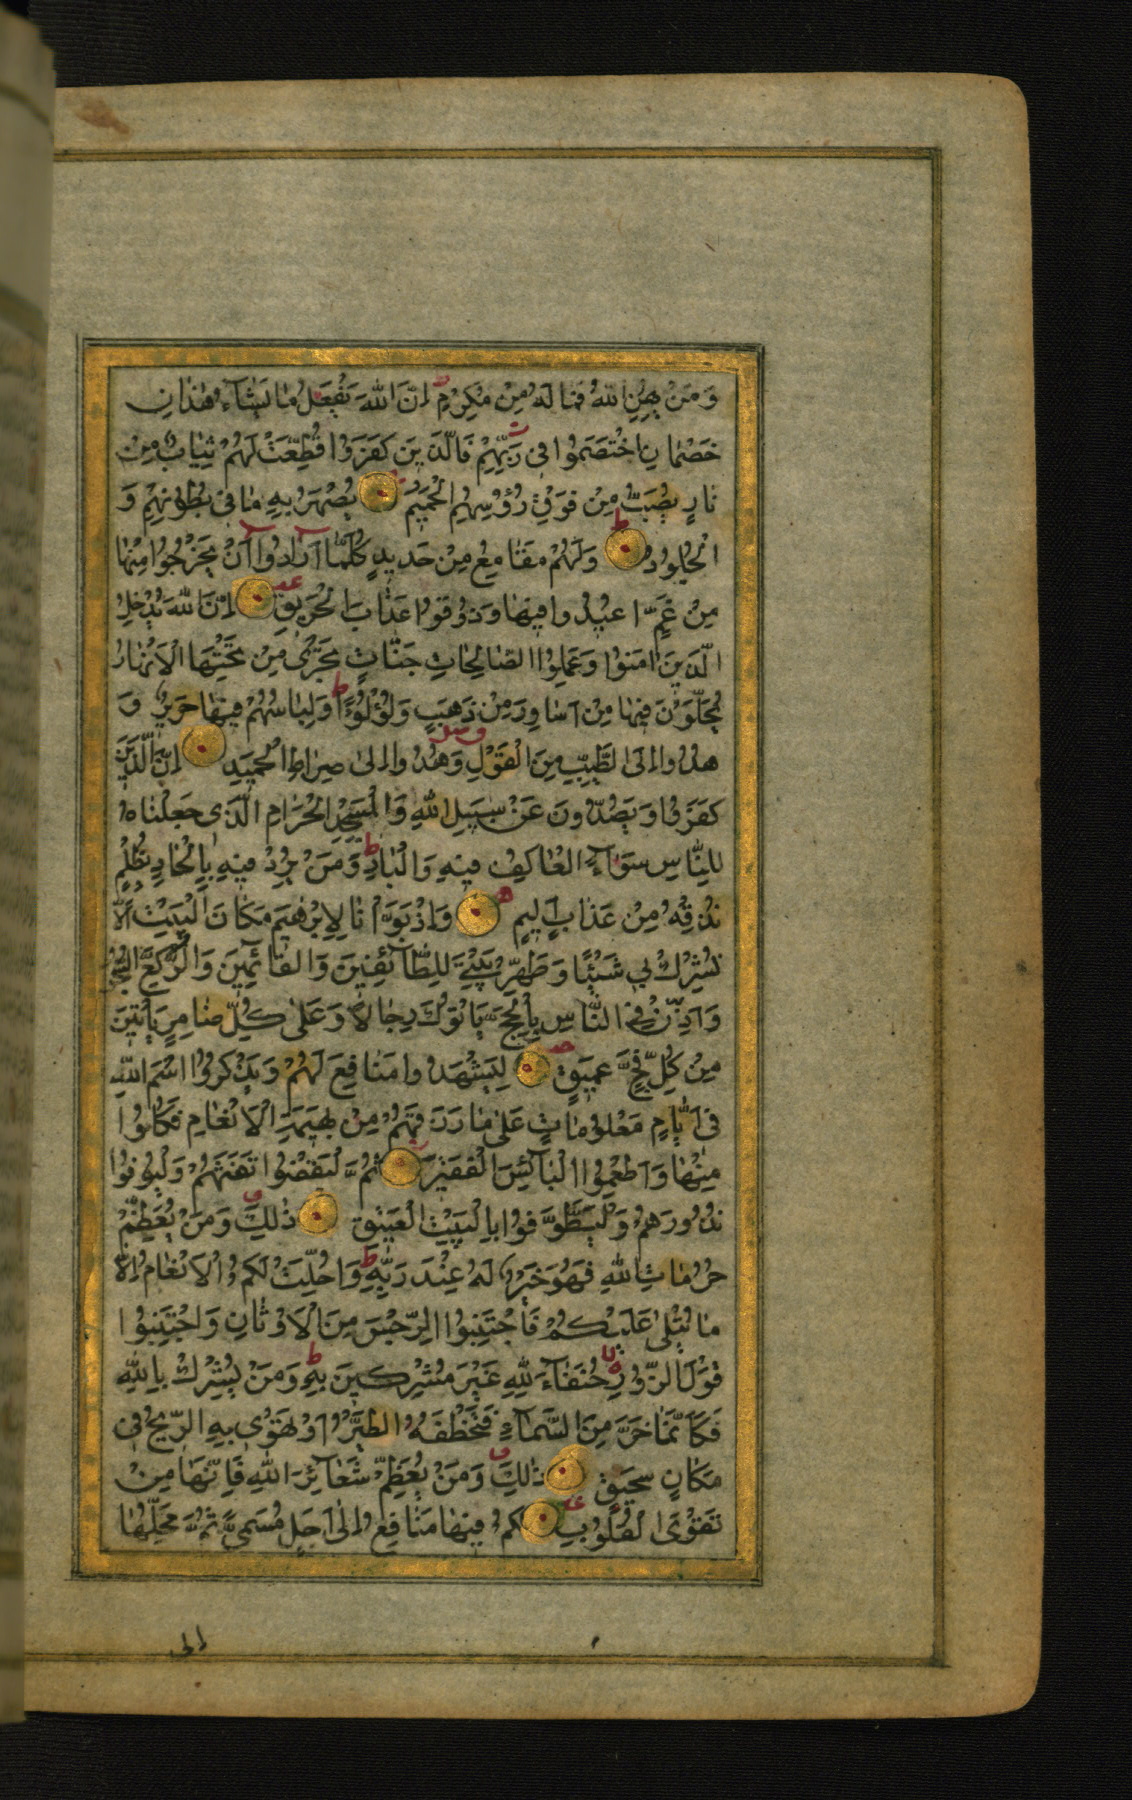 وَمَنْ يُهِنِ اللهُ فَمَا لَهُ مِنْ مُكْرِمٍ اِنَّ اللهَ يَفْعَلُ مَا يَشَآءُ هٰذَانِ
خَصْمَانِ اخْتَصَمُوا فِى رَبِّهِمْ فَالَّذِينَ كَفَرُوا قُطِّعَتْ لَهُمْ ثِيَابٌ مِنْ
نَارٍ يُصَبُّ مِنْ فَوْقِ رُؤُسِهِمُ الْحَمِيمُ يُصْهَرُ بِهِ مَا فِى بُطُونِهِمْ وَ
الْجُلُودُ وَلَهُمْ مَقَامِعُ مِنْ حَدِيدٍ كُلَّمَآ اَرَادُوآ اَنْ يَخْرُجُوا مِنْهَا
مِنْ غَمٍّ اُعِيدُوا فِيهَا وَذُوقُوا عَذَابَ الْحَرِيقِ اِنَّ اللهَ يُدْخِلُ
الَّذِينَ اٰمَنُوا وَعَمِلُوا الصَّالِحَاتِ جَنَّاتٍ تَجْرِى مِنْ تَحْتِهَا الْاَنْهَارُ
يُحَلَّوْنَ فِيهَا مِنْ اَسَاوِرَ مِنْ ذَهَبٍ وَلُؤْلُؤًا وَلِبَاسُهُمْ فِيهَا حَرِيرٌ وَ
هُدُوا اِلَى الطَّيِّبِ مِنَ الْقَوْلِ وَهُدُوا اِلٰى صِرَاطِ الْحَمِيدِ اِنَّ الَّذِينَ
كَفَرُوا وَيَصُدُّونَ عَنْ سَبِيلِ اللهِ وَالْمَسْجِدِ الْحَرَامِ الَّذِى جَعَلْنَاهُ
لِلنَّاسِ سَوَآءً الْعَاكِفُ فِيهِ وَالْبَادِ وَمَنْ يُرِدْ فِيهِ بِاِلْحَادٍ بِظُلْمٍ
نُذِقْهُ مِنْ عَذَابٍ اَلِيمٍ وَاِذْ بَوَّاْنَا لِاِبْرٰهِيمَ مَكَانَ الْبَيْتِ اَنْ لَا
تُشْرِكْ بِى شَيْئًا وَطَهِّرْ بَيْتِىَ لِلطَّآئِفِينَ وَالْقَآئِمِينَ وَالرُّكَّعِ السُّجُودِ
وَاَذِّنْ فِى النَّاسِ بِالْحَجِّ يَاْتُوكَ رِجَالًا وَعَلٰى كُلِّ ضَامِرٍ يَاْتِينَ
مِنْ كُلِّ فَجٍّ عَمِيقٍ لِيَشْهَدُوا مَنَافِعَ لَهُمْ وَيَذْكُرُوا اسْمَ اللهِ
فِى اَيَّامٍ مَعْلُومَاتٍ عَلٰى مَا رَزَقَهُمْ مِنْ بَهِيمَةِ الْاَنْعَامِ فَكُلُوا
مِنْهَا وَاَطْعِمُوا الْبَآئِسَ الْفَقِيرَ ثُمَّ لْيَقْضُوا تَفَثَهُمْ وَلْيُوفُوا
نُذُورَهُمْ وَلْيَطَّوَّفُوا بِالْبَيْتِ الْعَتِيقِ ذٰلِكَ وَمَنْ يُعَظِّمْ
حُرُمَاتِ اللهِ فَهُوَ خَيْرٌ لَهُ عِنْدَ رَبِّهِ وَاُحِلَّتْ لَكُمُ الْاَنْعَامُ اِلَّا
مَا يُتْلٰى عَلَيْكُمْ فَاجْتَنِبُوا الرِّجْسَ مِنَ الْاَوْثَانِ وَاجْتَنِبُوا
قَوْلَ الزُّورِ حُنَفَآءَ لِلهِ غَيْرَ مُشْرِكِينَ بِهِ وَمَنْ يُشْرِكْ بِاللهِ
فَكَاَنَّمَا خَرَّ مِنَ السَّمَآءِ فَتَخْطَفُهُ الطَّيْرُ اَوْ تَهْوِى بِهِ الرِّيحُ فِى
مَكَانٍ سَحِيقٍ ذٰلِكَ وَمَنْ يُعَظِّمْ شَعَآئِرَ اللهِ فَاِنَّهَا مِنْ
تَقْوَى الْقُلُوبِ لَكُمْ فِيهَا مَنَافِعُ اِلٰى اَجَلٍ مُسَمًّى ثُمَّ مَحِلُّهَا
الى